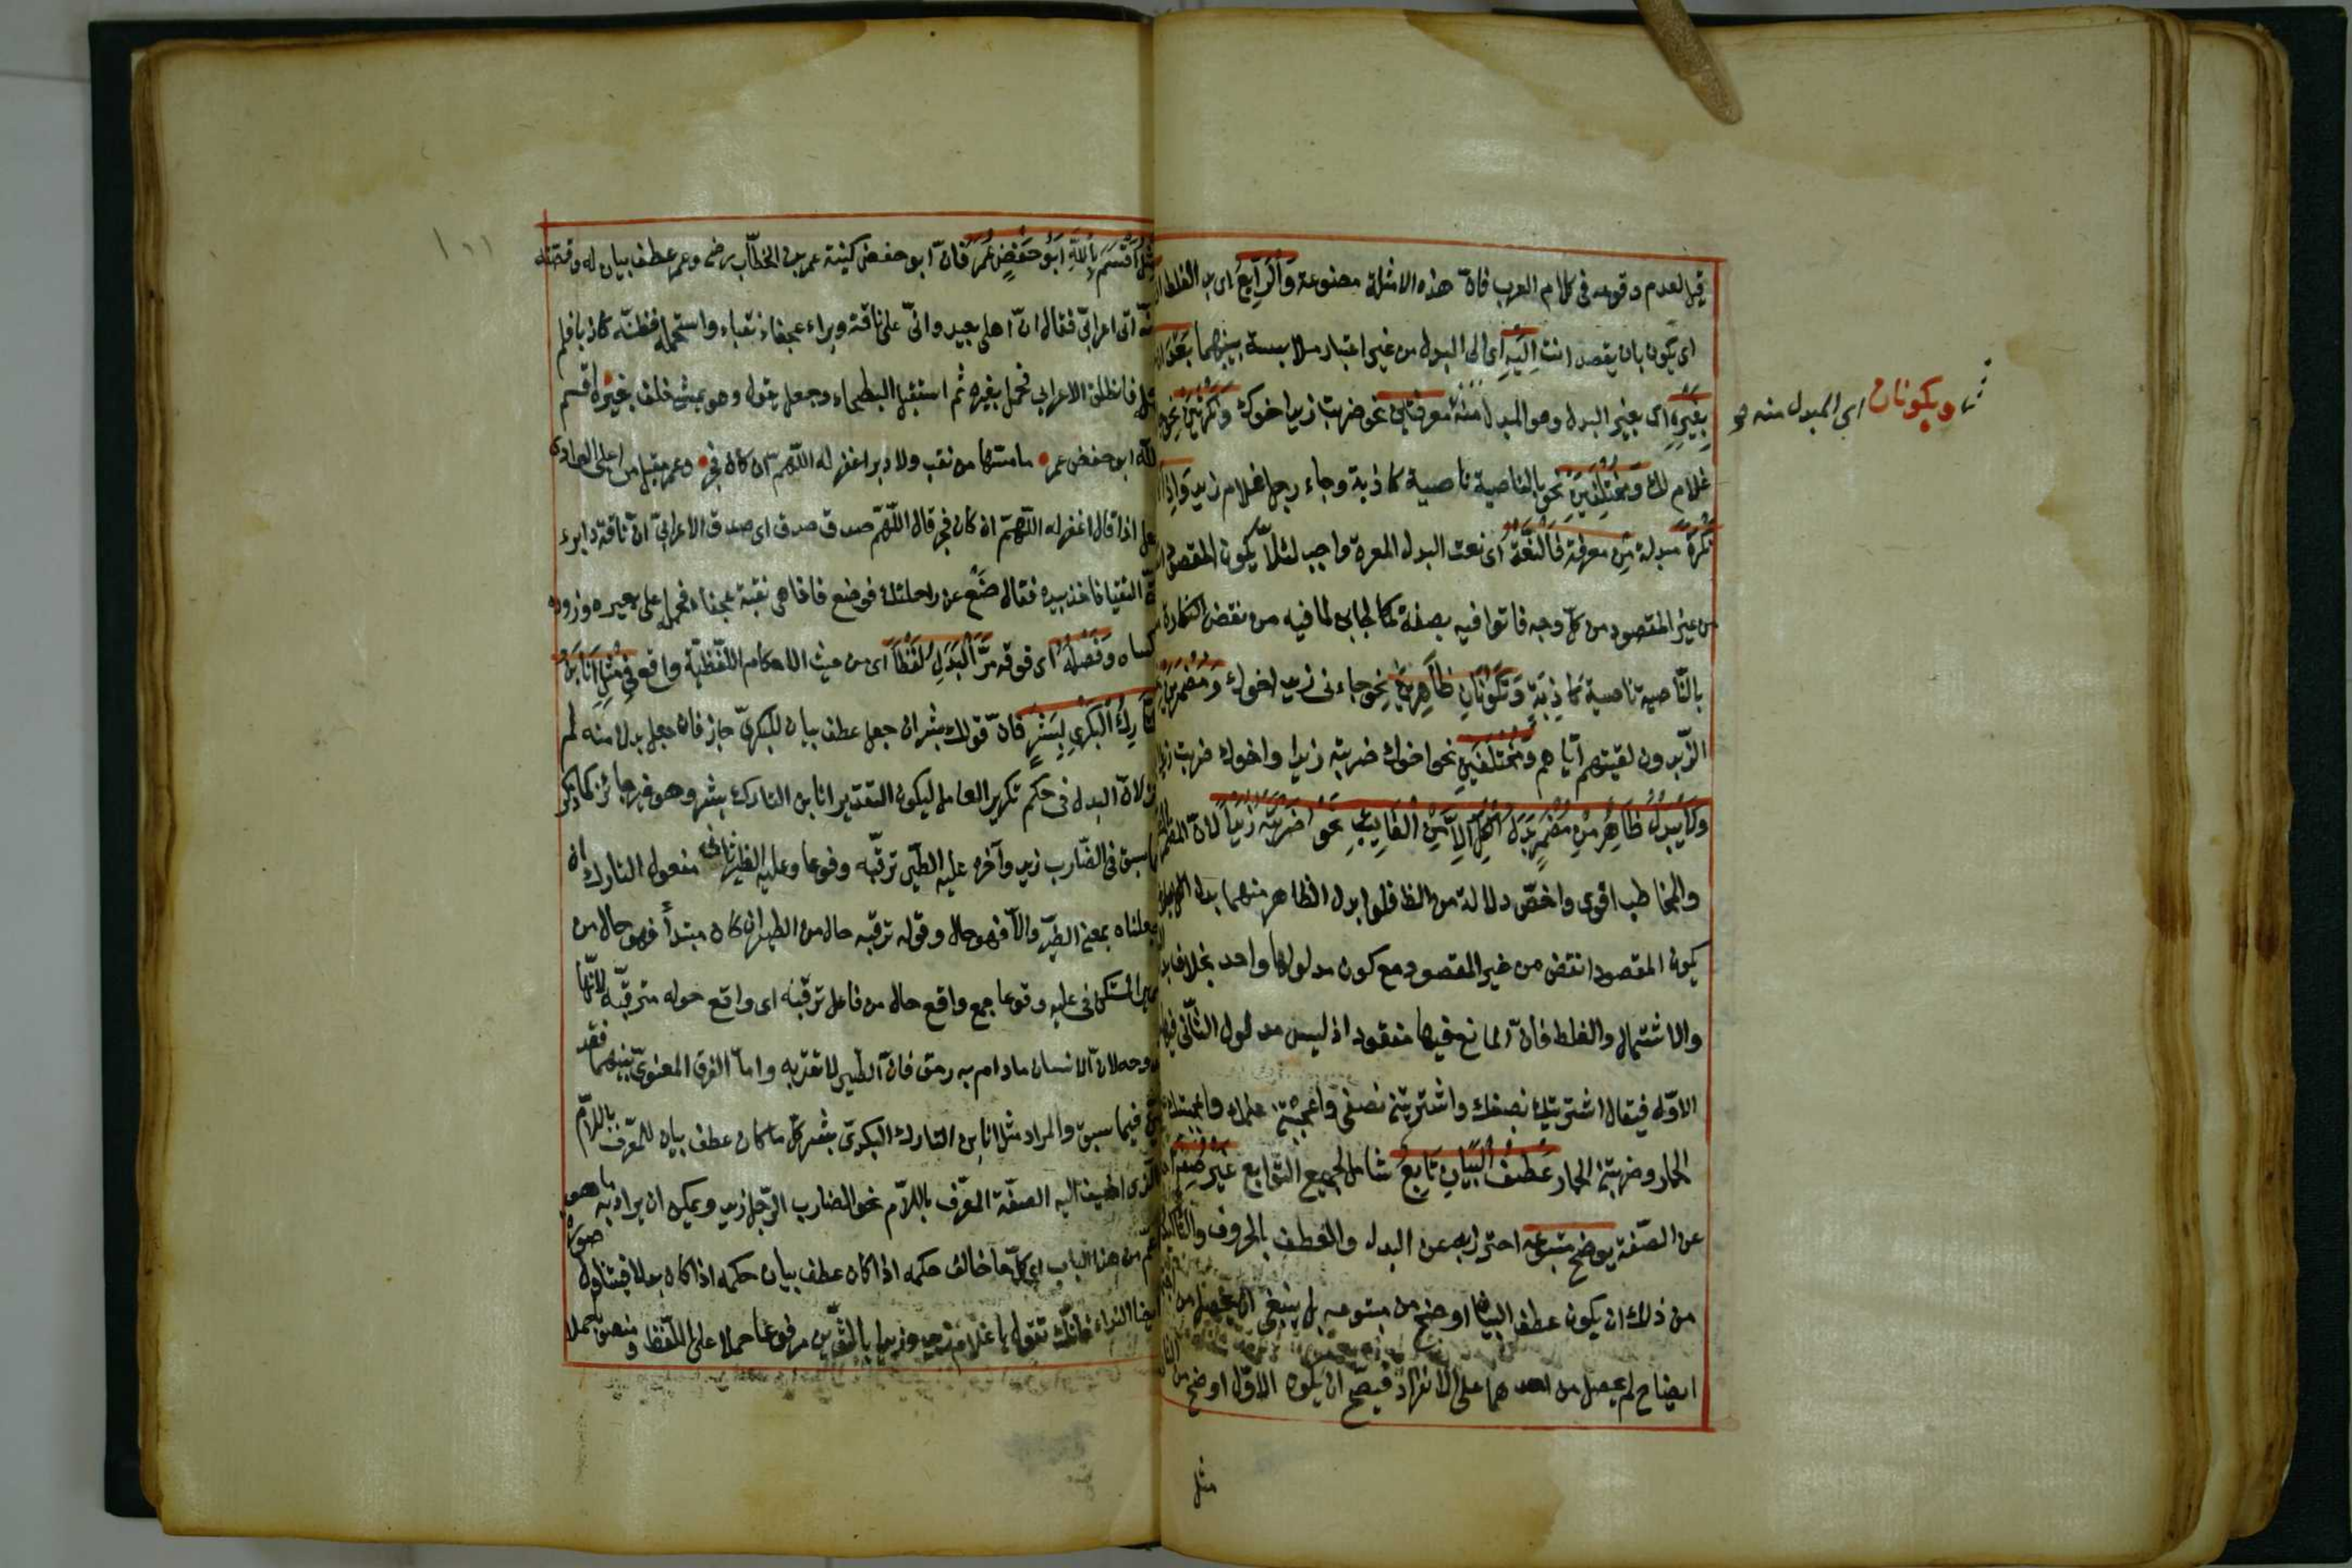 قيل لعدم وقوعه فى كلام العرب فان هذه الامثلة مصنوعة وَالرَّابِعُ اى بدل الغلط ان
اى يكون بان يقصد انت اِلَيْهِ اى الى البدل من غير اعتبار ملابسة بينهما بَعْدَ ان
بِغَيْرِهِ اى بغير البدل وهو المبدل منه معرفتين نحو ضربت زيدا اخوك وَنَكِرَتَيْنِ نحو
ويكونان اى المبدل منه و
غلام لك وَمُخْتَلِفَيْنِ نحو بالناصية ناصية كاذبة وجاء رجل غلام زيد وَاِذَا
نَكِرَةً مبدلة مِنْ معرفة فَالنَّعْتُ اى نعت البدل المعرة واجب لئلّا يكون المقصود
من غير المقصود من كلّ وجه فاتوا فيه بصفة كالجابر لما فيه من نقض النكارة
بالنّاصية ناصية كَاذِبَةٍ وَتَكُونَانِ ظَاهِرَيْنِ نحو جاءنى زيد اخوك وَمُضْمَرَيْنِ
الزّيدون لقيتهم ايّاهم وَمُخْتَلِفَيْنِ نحو اخوك ضربته زيدا واخوك ضربت زيدا
وَلَا يُبْدَلُ ظَاهِرٌ مِنْ مُضْمَرٍ بَدَلَ الْكُلِّ اِلَّا مِنَ الْغَائِبِ نَحْوُ ضَرَبْتُهُ زَيْدًا لانّ المضمر
والمخاطب اقوى واخصّ دلالة من الظا فلو ابدل الظاهر منهما بدل الكل
يكون المقصود انقض من غير المقصود مع كون مدلولها واحد بخلاف
والاشتمال والغلط فانّ المانع فيها مفقود اذ ليس مدلول الثّانى فيها
الاوّل فيقال اشتريتك نصفك واشتريتنى نصفى واعجبتنى علمك واعجبتك
الحمار وضربتك الحمار عَطْفُ الْبَيَانِ تَابِعٌ شامل لجميع التّوابع غَيْرُ صِفَةٍ
عن الصّفة يوضح متبوعه احترز به عن البدل والعطف بالحروف والتّاكيد
من ذلك ان يكون عطف البيان اوضح من متبوعه بل ينبغى ان يحصل من
ايضاح لم يحصل من احدهما على الانفراد فيصحّ ان يكون الاوّل اوضح من
مثل
مثل اَقْسَمَ بِاللّٰهِ اَبُو حَفْصٍ عُمَرُ فانّ ابو حفص كنية عمر بن الخطّاب رض وعمر عطف بيان له وقصّته
انّه اتى اعرابىّ فقال انّ اهلى بعيد وانّى على ناقة دبراء عجفاء نقباء واستحمله فظنّه كاذبا فلم
فانطلق الاعرابى فحمل بغيره ثم استقبل البطحاء وجعل يقول وهو يمشى خلف بغيره اقسم
بالله ابو حفص عمر ما مسّها من نقب ولا دبر اغفر له اللّهمّ ان كان فجر وعمر مقبل من اعلى الوادى
اذا قال اغفر له اللّهمّ ان كان فجر قال اللّهمّ صدق صدق اى صدق الاعرابىّ انّ ناقة دابرء
التقيا فاخذ بيده فقال ضَعْ عن راحلتك فوضع فاذا هى نقبة عجفاء فحمله على بعيره وزوده
وكساه وَفَصْلُهُ اى فرقه مِنَ الْبَدَلِ لَفْظًا اى من حيث الاحكام اللّفظيّة واقع فِى مِثْلِ اَنَا ابْنُ
التَّارِكِ الْبَكْرِىِّ بِشْرٍ فانّ قولك بشر ان جعل عطف بيان للبكرىّ جاز فان جعل بدلا منه لم
لانّ البدل فى حكم تكرير العامل ليكون التقدير انا ابن التارك بشر وهو غير جائز كما ذكر
سبق فى الضّارب زيد وآخره عليه الطّير ترقبه وقوعا وعليه الطير ثانى مفعول التارك ان
جعلناه بمعنى الصيّر والّا فهو حال وقوله ترقبه حال من الطير ان كان مبتدأ فهو حال من
المستكن فى عليه وقوعا جمع واقع حال من فاعل ترقبه اى واقع حوله مترقّبه لانّها
روحه لانّ الانسان مادام به رمق فانّ الطّير لا تقربه وامّا الفرق المعنوىّ بينهما فقد
فيما سبق والمراد مثل انا ابن التارك البكرىّ بشر كلّ ما كان عطف بيان للمعرّف باللّام
الّذى اضيف اليه الصفة المعرّف باللّام نحو الضارب الرّجل زيد ويمكن ان يراد به ما هو
اعم من هذا الباب اى كلّ ما خالف حكمه اذا كان عطف بيان حكمه اذا كان بدلا فيتناول صورة
ايضا النداء فانّك تقول يا غلام زيد وزيدا بالتّنوين مرفوعا حملا على اللّفظ ومنصوبا حملا